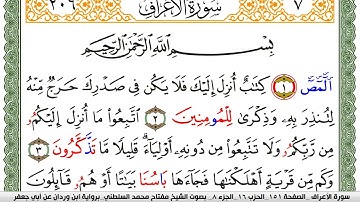 ٢٠٦ سُورَةُ الأَعْرَافِ ٧
بِسْمِ اللَّهِ الرَّحْمَٰنِ الرَّحِيمِ
الٓمٓصٓ ١ كِتَٰبٌ أُنزِلَ إِلَيْكَ فَلَا يَكُن فِى صَدْرِكَ حَرَجٌ مِّنْهُ
لِتُنذِرَ بِهِۦ وَذِكْرَىٰ لِلْمُومِنِينَ ٢ ٱتَّبِعُواْ مَا أُنزِلَ إِلَيْكُمُۥ
مِن رَّبِّكُمُۥ وَلَا تَتَّبِعُواْ مِن دُونِهِۦ أَوْلِيَآءَ قَلِيلًا مَّا تَذَّكَّرُونَ ٣
وَكَم مِّن قَرْيَةٍ أَهْلَكْنَٰهَا فَجَآءَهَا بَاسُنَا بَيَٰتًا أَوْ هُمُۥ قَآئِلُونَ
سورة الأعراف . الصفحة ١٥١ . الحزب ١٦ . الجزء ٨ . بصوت الشيخ مفتاح محمد السلطني . برواية ابن وردان عن أبي جعفر